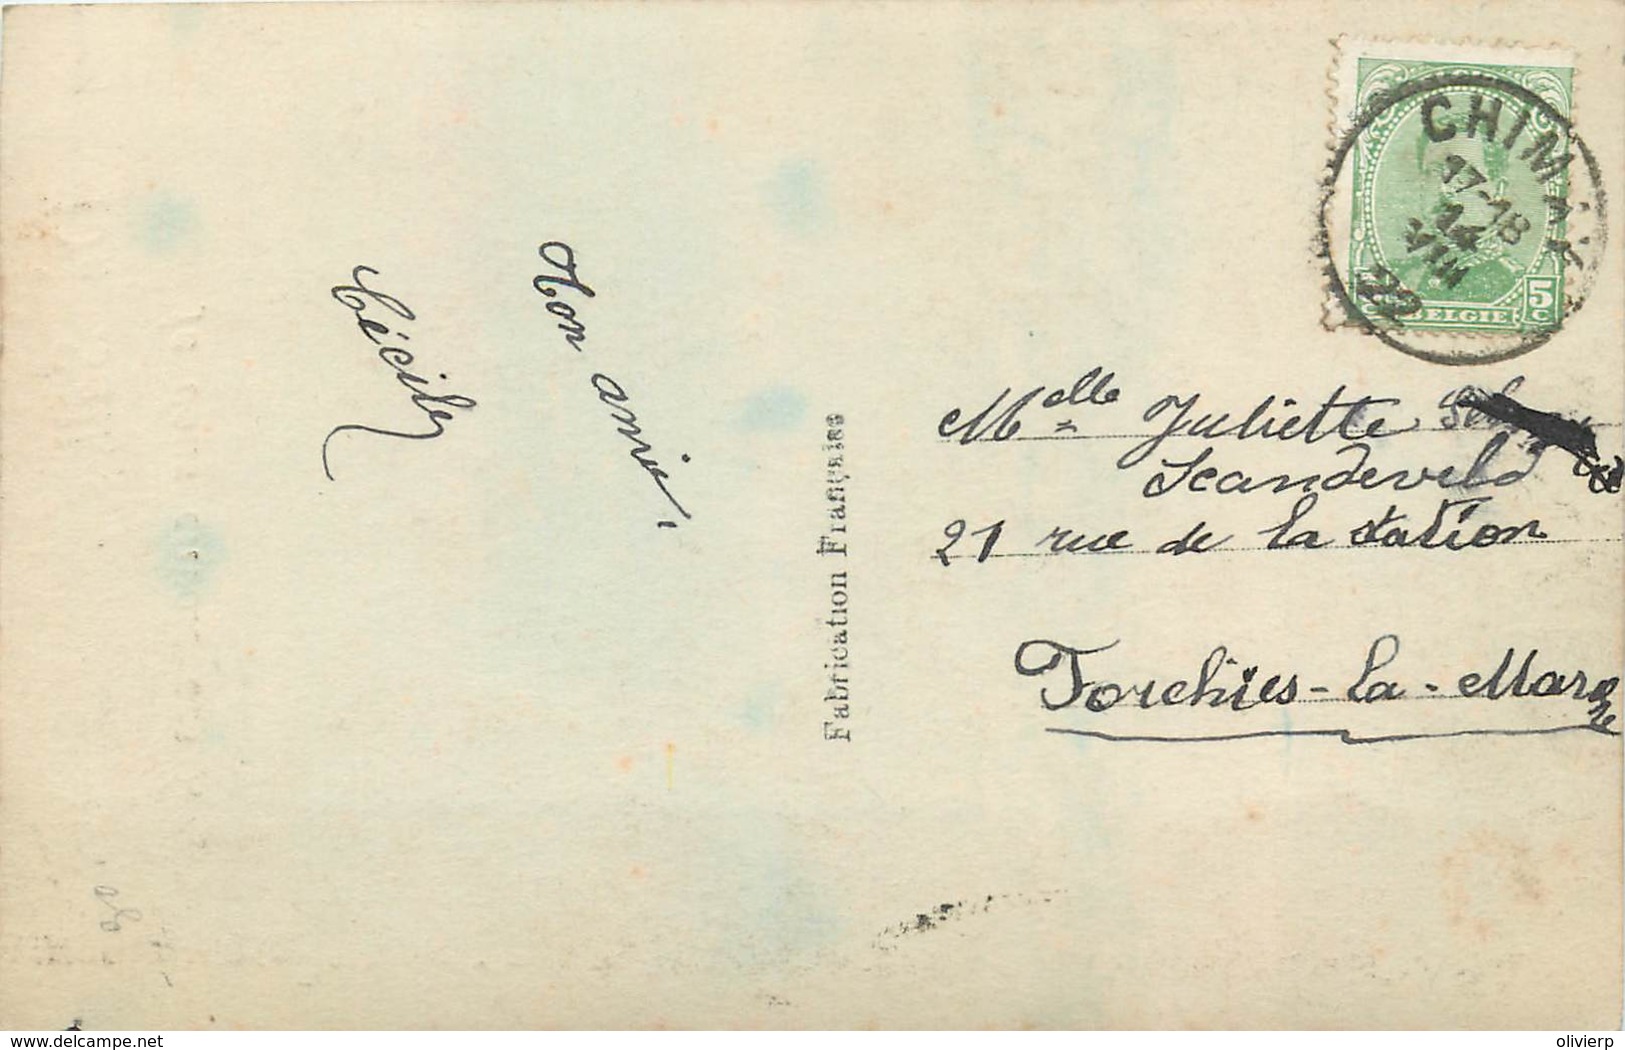 Ton amie,
Cécile
Fabrication Française
CHIMAY
17-18
14
VIII
22
5
C
BELGIE
Melle Juliette
Scandeveld
21 rue de la station
Forchies-la-Marche
30
delcampe.net
olivierp